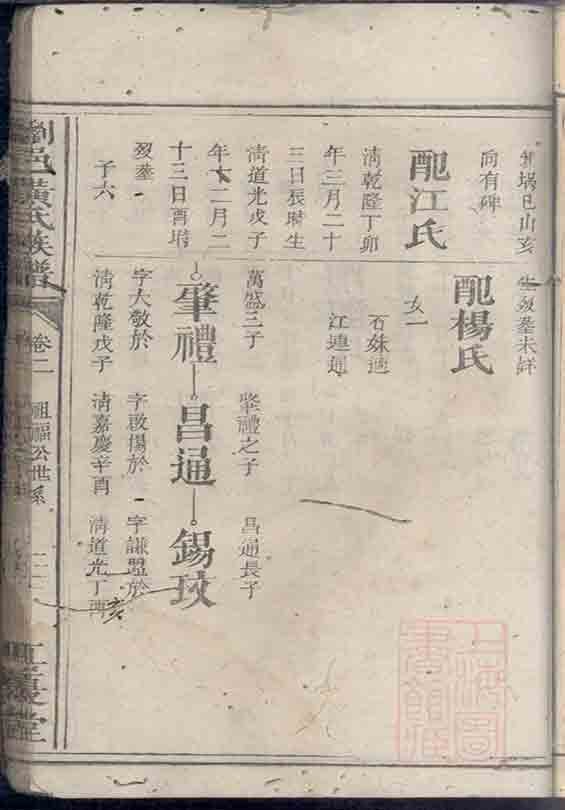 向有碑
配江氏
清乾隆丁卯
年三月二十
三日辰時生
清道光戊子
年十二月二
十三日酉時
歿葬
子六
生歿葬未詳
配楊氏
女一
石妹適
江連通
萬盛三子
肇禮
字大敬於
清乾隆戊子
肇禮之子
昌通
字啟揚於
清嘉慶辛酉
昌通長子
錫玟
字謙盟於
清道光丁酉
亥
瀏邑黃氏族譜
卷二
祖福公世系
江夏堂
上海圖
書館藏